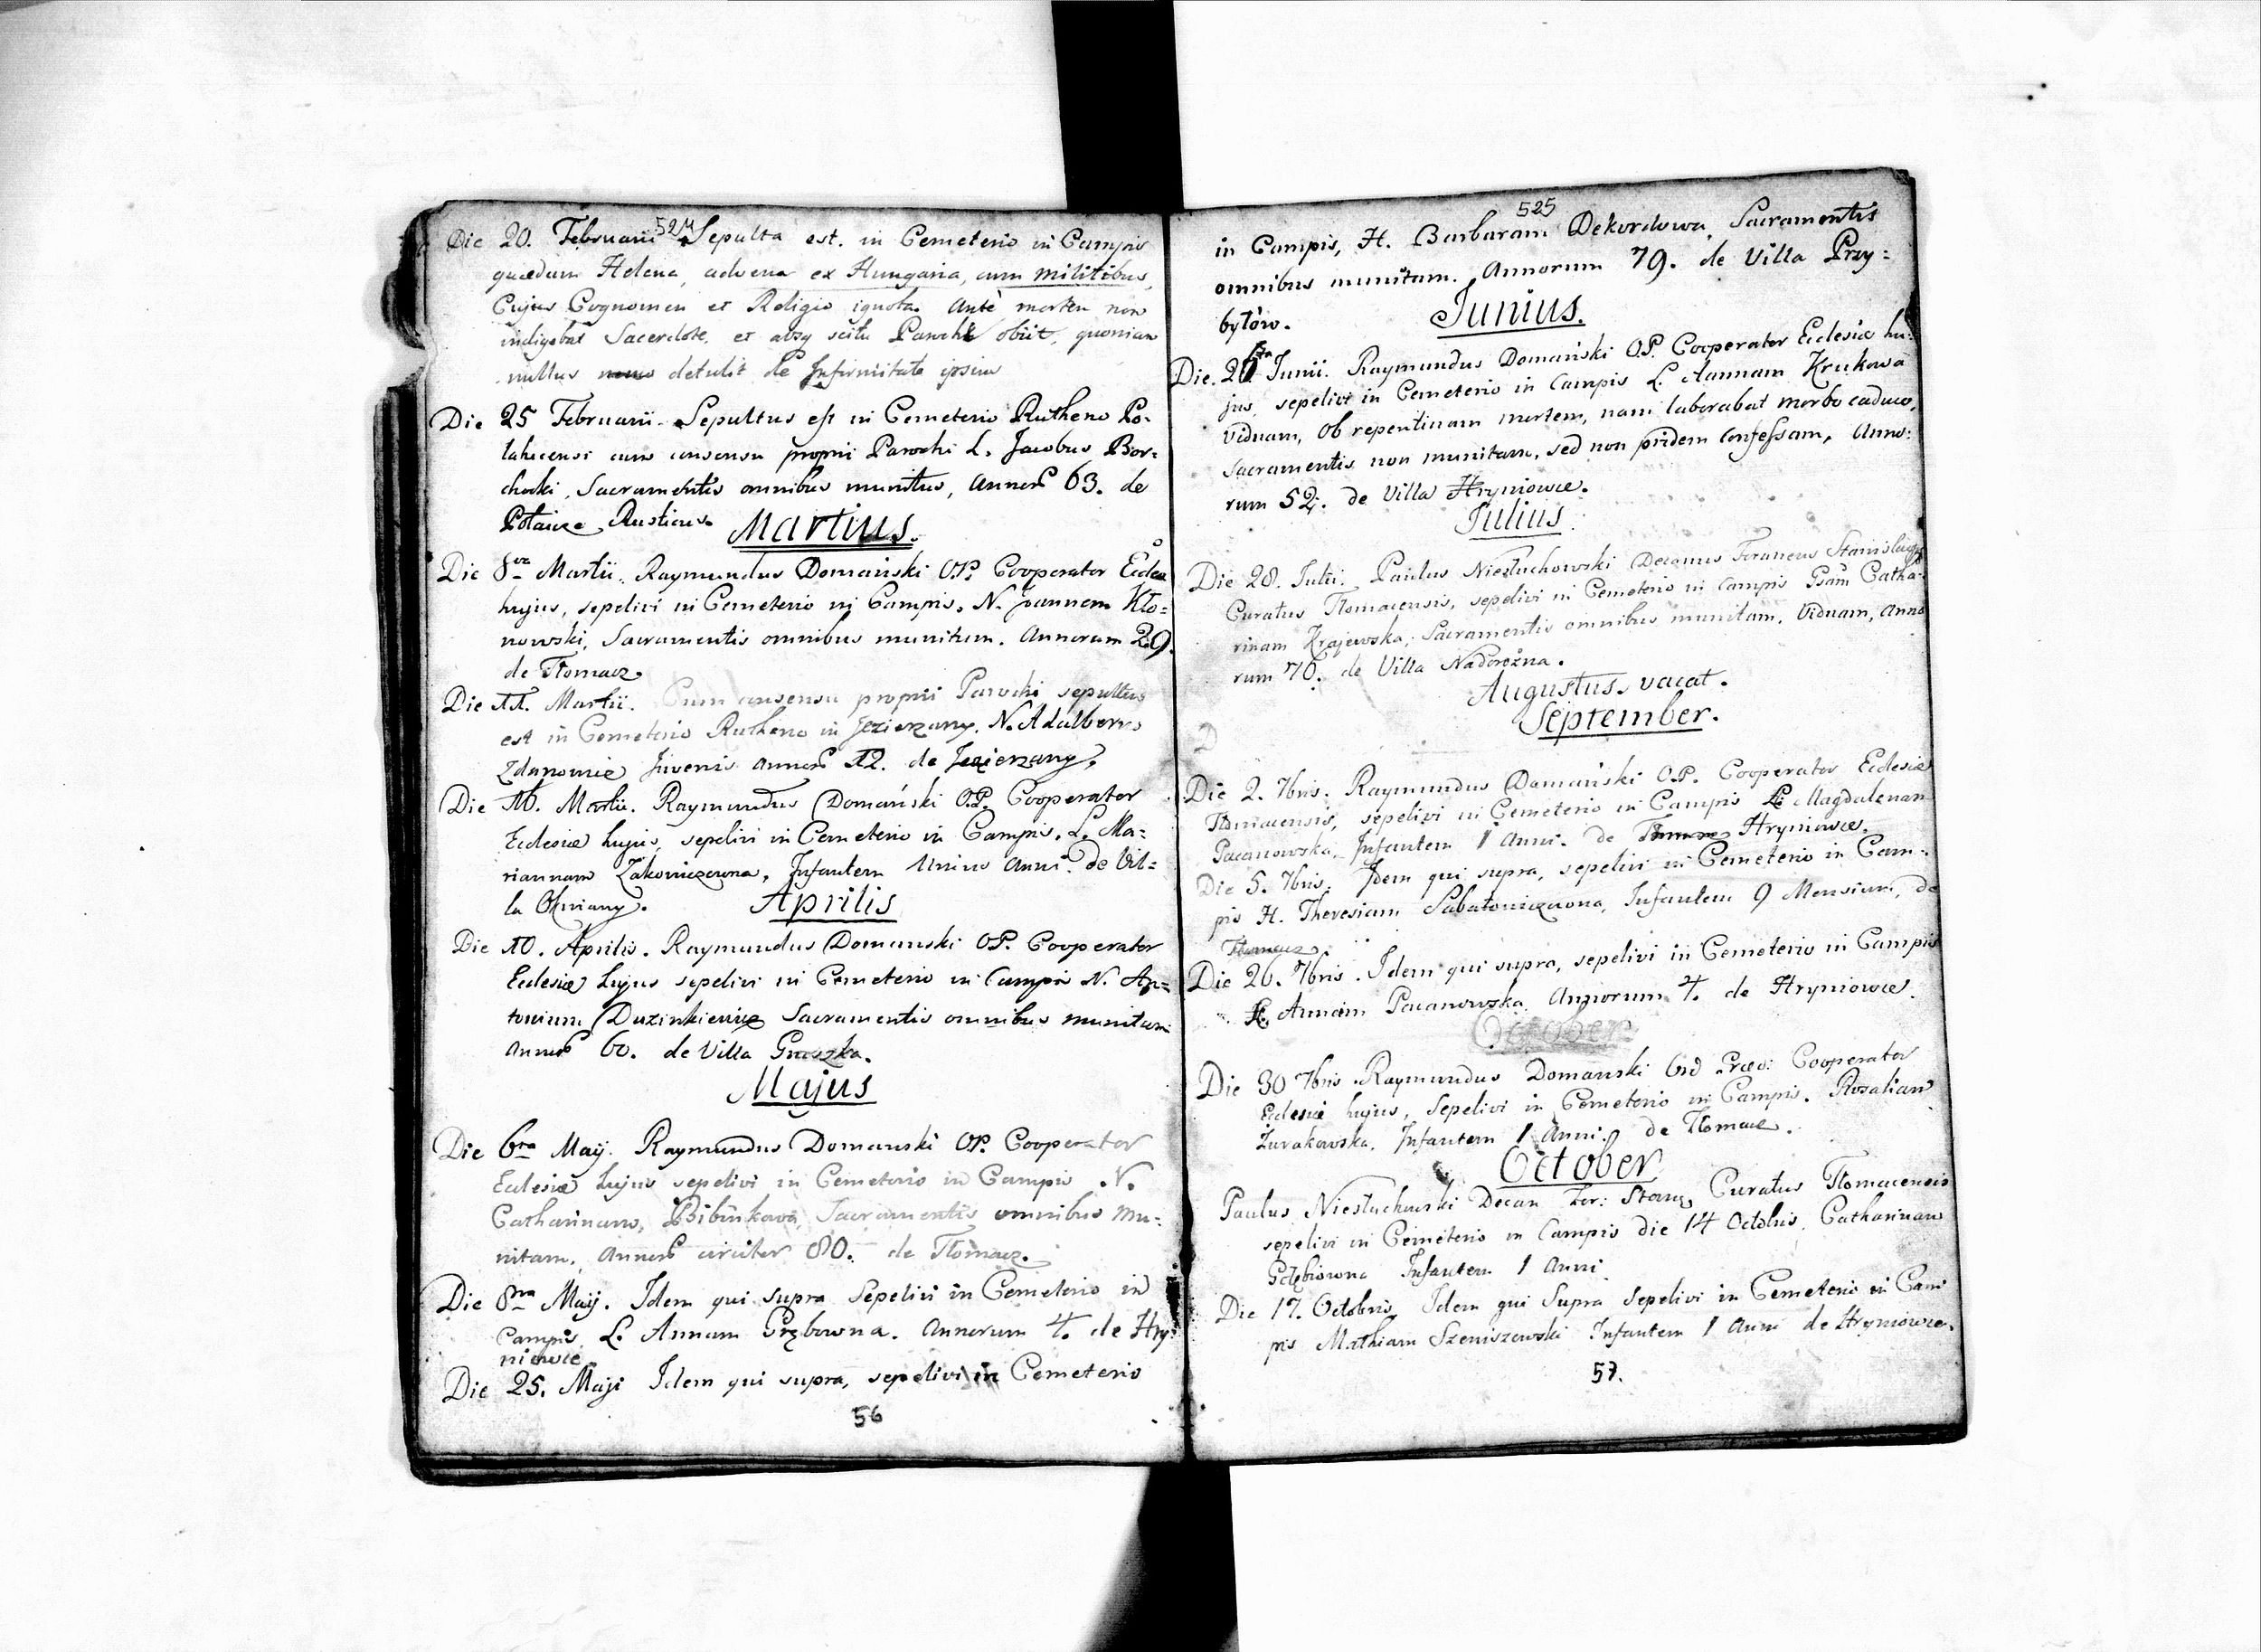 524
Die 20. Februarii Sepulta est. in Cemeterio in Campis
quædam Helena, advena ex Hungaria, cum militibus,
Cujus Cognomen et Religio ignota. Antè mortem non
indigebat Sacerdote, et absq scitu Parochi obiit, quoniam
nullus detulit de Infirmitate ipsius
Die 25 Februarii. Sepultus est in Cemeterio Rutheno Po-
lahicensi cum consensu proprii Parochi L. Jacobus Bor-
chocki, Sacramentis omnibus munitus, Annor 63. de
Rusticus.
Martius.
Die 8va Martii, Raymundus Domański O.P. Cooperator Eccles
hujus, sepelivi in Cemeterio in Campis. N. Joannem Kło=
nowski, Sacramentis omnibus munitum. Annorum 29.
de Tłomacz.
Die 11. Martii. Cum consensu proprii Parochi sepultus
est in Cemeterio Rutheno in Jezierzany. N. Adalbertus
Zdanowicz Juvenis annor 12. de Jezierzany.
Die 16. Martii. Raymundus Domański O.P. Cooperator
Eclesiæ hujus, sepelivi in Cemeterio in Campis. L. Ma=
riannam Zakowiczowna, Infantem Unius Anni. de Vil=
la Okniany.
Aprilis
Die 10. Aprilis. Raymundus Domanski O.P. Cooperator
Eclesiæ hujus sepelivi in Cemeterio in Campis N. An=
tonium Duzinkiewicz Sacramentis omnibus munitum
Annor 60. de Villa Gruszka.
Majus
Die 6ta Maij. Raymundus Domanski O.P. Cooperator
Eclesiæ hujus sepelivi in Cemeterio in Campis N.
Catharinam, Bibinkowa, Sacramentis omnibus mu-
nitam, Annor circiter 80. de Tłomacz.
Die 8va Maij. Idem qui supra Sepelivi in Cemeterio in
Campis, L. Annam Grębowna. Annorum 4. de Hry
niowce
Die 25. Maji Idem qui supra, sepelivi in Cemeterio
56
525
in Campis, H. Barbaram Dekordowa, Sacramentis
omnibus munitam. Annorum 79. de Villa Przy=
byłów.
Junius.
Die 26ta Junii. Raymundus Domański O.P. Cooperator Eclesiæ hu-
jus, sepelivi in Cemeterio in Campis L. Annam Krukowa
Viduam, Ob repentinam mortem, nam laborabat morbo caduco,
Sacramentis non munitam, sed non pridem Confessam, Anno:
rum 52. de Villa Hryniowce.
Julius
Die 28. Julii. Paulus Niesłuchowski Decanus Foraneus
Curatus Tłomacensis, sepelivi in Cemeterio in Campis Gsam Catha-
rinam Krajewska, Sacramentis omnibus munitam, Viduam, Anno
rum 70. de Villa Nadorożna.
Augustus. vacat.
September.
Die 2. 7bris. Raymundus Domański O.P. Cooperator Eclesiæ
Tłomacensis, sepelivi in Cemeterio in Campis L. Magdalenam
Pacanowska, Infantem 1 Anni. de Hryniowce.
Die 5. 7bris. Idem qui supra, sepelivi in Cemeterio in Cam-
pis H. Theresiam Sabatowiczowna, Infantem 9 Mensium, de
Tłomacz.
Die 26. 7bris. Idem qui supra, sepelivi in Cemeterio in Campis
Annam Pacanowska, Annorum 4. de Hryniowce.
October
Die 30 7bris. Raymundus Domanski Ord Præd: Cooperator
Eclesiæ hujus, Sepelivi in Cemeterio in Campis. Rosaliam
Zurakowska, Infantem 1 Anni. de Tłomacz.
October
Paulus Niesłuchowski Decan For: Curatus Tłomacensis
sepelivi in Cemeterio in Campis die 14 Octobris, Catharinam
Infantem 1 Anni
Die 17. Octobris, Idem qui Supra Sepelivi in Cemeterio in Cam
pis Mathiam Szeniszewski Infantem 1 Anni de Hryniowce.
57.